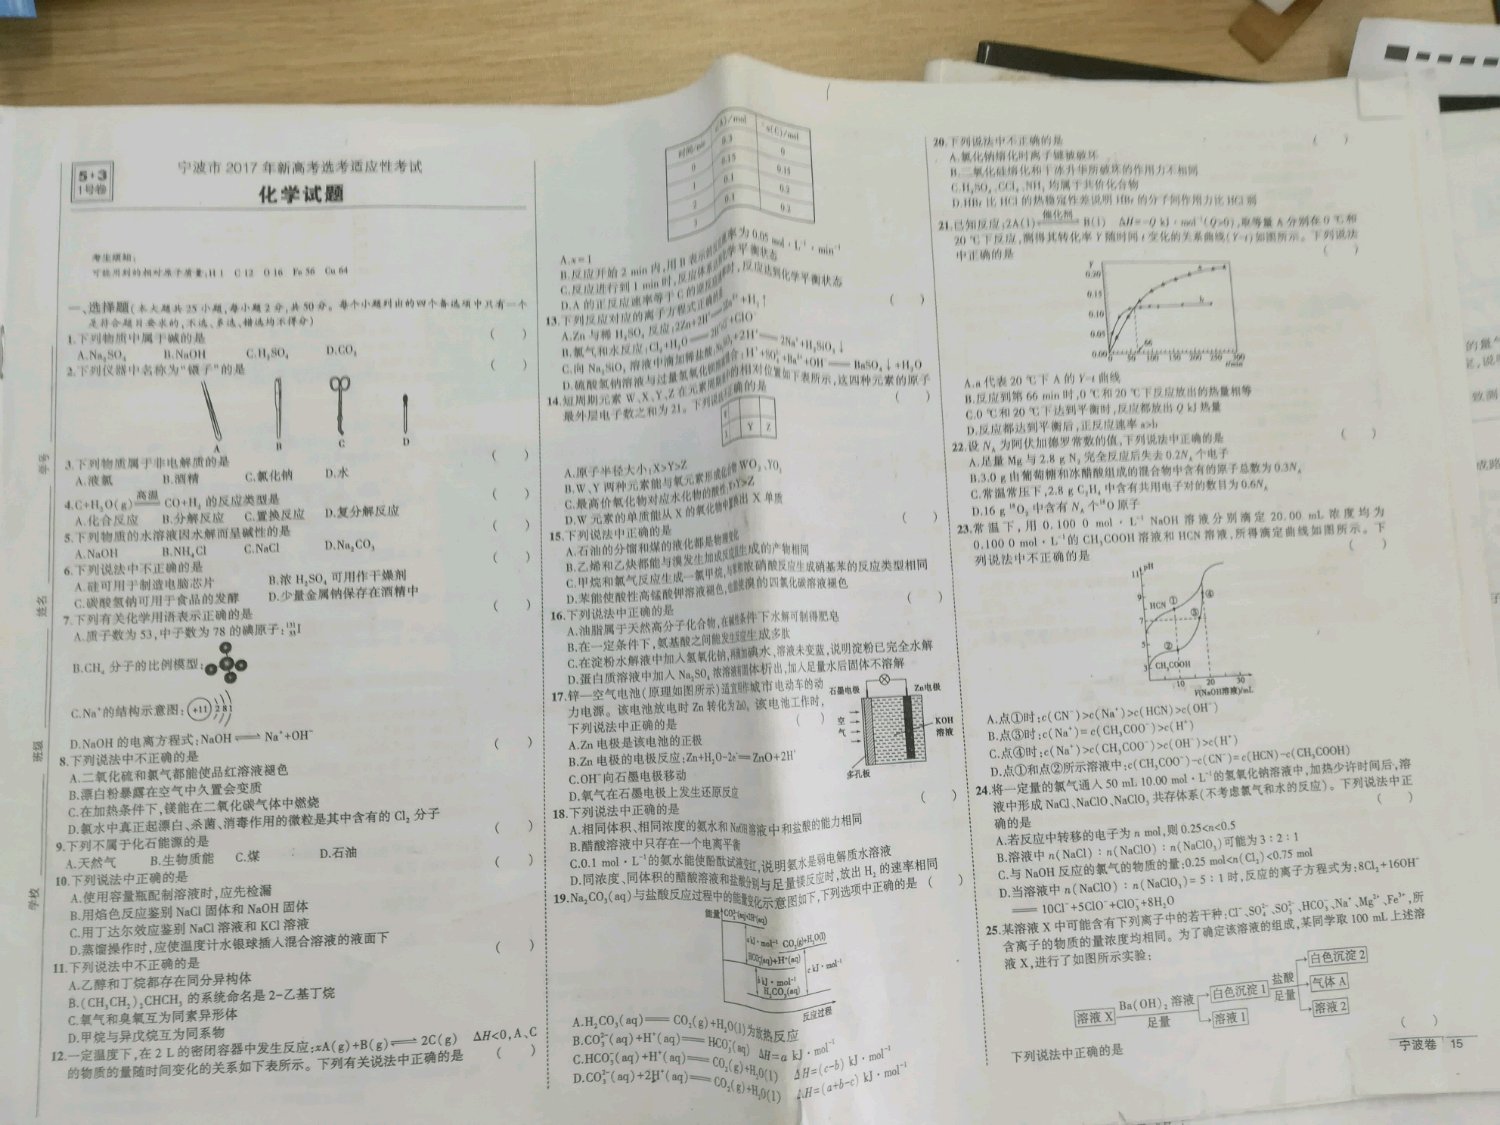 5·3
1号卷
宁波市 2017 年新高考选考适应性考试
化学试题
考生须知:
可能用到的相对原子质量:H 1 C 12 O 16 Fe 56 Cu 64
一、选择题(本大题共 25 小题,每小题 2 分,共 50 分。每个小题列出的四个备选项中只有一个
是符合题目要求的,不选、多选、错选均不得分)
1.下列物质中属于碱的是 ( )
A.Na₂SO₄ B.NaOH C.H₂SO₄ D.CO₂
2.下列仪器中名称为“镊子”的是
A B C D
3.下列物质属于非电解质的是 ( )
A.液氯 B.酒精 C.氯化钠 D.水
4.C+H₂O(g)══高温══CO+H₂ 的反应类型是 ( )
A.化合反应 B.分解反应 C.置换反应 D.复分解反应
5.下列物质的水溶液因水解而呈碱性的是 ( )
A.NaOH B.NH₄Cl C.NaCl D.Na₂CO₃
6.下列说法中不正确的是 ( )
A.硅可用于制造电脑芯片 B.浓 H₂SO₄ 可用作干燥剂
C.碳酸氢钠可用于食品的发酵 D.少量金属钠保存在酒精中
7.下列有关化学用语表示正确的是 ( )
A.质子数为 53,中子数为 78 的碘原子:¹³¹₅₃I
B.CH₄ 分子的比例模型:
C.Na⁺的结构示意图: +11 2 8 1
D.NaOH 的电离方程式:NaOH⇌Na⁺+OH⁻
8.下列说法中不正确的是 ( )
A.二氧化硫和氯气都能使品红溶液褪色
B.漂白粉暴露在空气中久置会变质
C.在加热条件下,镁能在二氧化碳气体中燃烧
D.氯水中真正起漂白、杀菌、消毒作用的微粒是其中含有的 Cl₂ 分子
9.下列不属于化石能源的是 ( )
A.天然气 B.生物质能 C.煤 D.石油
10.下列说法中正确的是 ( )
A.使用容量瓶配制溶液时,应先检漏
B.用焰色反应鉴别 NaCl 固体和 NaOH 固体
C.用丁达尔效应鉴别 NaCl 溶液和 KCl 溶液
D.蒸馏操作时,应使温度计水银球插入混合溶液的液面下
11.下列说法中不正确的是 ( )
A.乙醇和丁烷都存在同分异构体
B.(CH₃CH₂)₂CHCH₃ 的系统命名是 2-乙基丁烷
C.氧气和臭氧互为同素异形体
D.甲烷与异戊烷互为同系物
12.一定温度下,在 2 L 的密闭容器中发生反应:xA(g)+B(g)⇌2C(g) ΔH<0,A、C
的物质的量随时间变化的关系如下表所示。下列有关说法中正确的是 ( )
学号
姓名
班级
学校
时间/min n(A)/mol n(C)/mol
0 0.3 0
1 0.15 0.15
2 0.1 0.2
3 0.1 0.2
A.x=1
B.反应开始 2 min 内,用 B 表示的反应速率为 0.05 mol·L⁻¹·min⁻¹
C.反应进行到 1 min 时,反应体系达到化学平衡状态
D.A 的正反应速率等于 C的逆反应速率时,反应达到化学平衡状态
13.下列反应对应的离子方程式正确的是 ( )
A.Zn 与稀 H₂SO₄ 反应:2Zn+2H⁺══2Zn⁺+H₂↑
B.氯气和水反应:Cl₂+H₂O══2H⁺+Cl⁻+ClO⁻
C.向 Na₂SiO₃ 溶液中滴加稀盐酸:Na₂SiO₃+2H⁺══2Na⁺+H₂SiO₃↓
D.硫酸氢钠溶液与过量氢氧化钡溶液混合:H⁺+SO₄²⁻+Ba²⁺+OH⁻══BaSO₄↓+H₂O
14.短周期元素 W、X、Y、Z 在元素周期表中的相对位置如下表所示,这四种元素的原子
最外层电子数之和为 21。下列说法正确的是 ( )
Y Z
A.原子半径大小:X>Y>Z
B.W、Y 两种元素能与氧元素形成化合物 WO₂、YO₂
C.最高价氧化物对应水化物的酸性:Y>Z
D.W 元素的单质能从 X 的氧化物中置换出 X 单质
15.下列说法中正确的是 ( )
A.石油的分馏和煤的液化都是物理变化
B.乙烯和乙炔都能与溴发生加成反应且生成的产物相同
C.甲烷和氯气反应生成一氯甲烷,与苯和浓硝酸反应生成硝基苯的反应类型相同
D.苯能使酸性高锰酸钾溶液褪色,也能使溴的四氯化碳溶液褪色
16.下列说法中正确的是 ( )
A.油脂属于天然高分子化合物,在碱性条件下水解可制得肥皂
B.在一定条件下,氨基酸之间能发生反应生成多肽
C.在淀粉水解液中加入氢氧化钠,再滴加碘水,溶液未变蓝,说明淀粉已完全水解
D.蛋白质溶液中加入 Na₂SO₄ 浓溶液有固体析出,加入足量水后固体不溶解
17.锌—空气电池(原理如图所示)适宜用作城市电动车的动
力电源。该电池放电时 Zn 转化为 ZnO。该电池工作时,
下列说法中正确的是 ( )
石墨电极 Zn电极
空气
KOH溶液
多孔板
A.Zn 电极是该电池的正极
B.Zn 电极的电极反应:Zn+H₂O-2e⁻══ZnO+2H⁺
C.OH⁻向石墨电极移动
D.氧气在石墨电极上发生还原反应
18.下列说法中正确的是 ( )
A.相同体积、相同浓度的氨水和 NaOH 溶液中和盐酸的能力相同
B.醋酸溶液中只存在一个电离平衡
C.0.1 mol·L⁻¹的氨水能使酚酞试液变红,说明氨水是弱电解质水溶液
D.同浓度、同体积的醋酸溶液和盐酸分别与足量镁反应时,放出 H₂ 的速率相同
19.Na₂CO₃(aq)与盐酸反应过程中的能量变化示意图如下,下列选项中正确的是 ( )
能量 CO₃²⁻(aq)+2H⁺(aq)
a kJ·mol⁻¹ CO₂(g)+H₂O(l)
HCO₃⁻(aq)+H⁺(aq) c kJ·mol⁻¹
b kJ·mol⁻¹
H₂CO₃(aq)
反应过程
A.H₂CO₃(aq)══CO₂(g)+H₂O(l)为放热反应
B.CO₃²⁻(aq)+H⁺(aq)══HCO₃⁻(aq) ΔH=a kJ·mol⁻¹
C.HCO₃⁻(aq)+H⁺(aq)══CO₂(g)+H₂O(l) ΔH=(c-b) kJ·mol⁻¹
D.CO₃²⁻(aq)+2H⁺(aq)══CO₂(g)+H₂O(l) ΔH=(a+b-c) kJ·mol⁻¹
20.下列说法中不正确的是 ( )
A.氯化钠熔化时离子键被破坏
B.二氧化硅熔化和干冰升华所破坏的作用力不相同
C.H₂SO₄、CCl₄、NH₃ 均属于共价化合物
D.HBr 比 HCl 的热稳定性差说明 HBr 的分子间作用力比 HCl 弱
21.已知反应:2A(l)══催化剂══B(l) ΔH=-Q kJ·mol⁻¹(Q>0),取等量 A 分别在 0 ℃和
20 ℃下反应,测得其转化率 Y 随时间 t 变化的关系曲线(Y-t)如图所示。下列说法
中正确的是 ( )
Y
0.20
0.15
0.10
0.05
0.00
a
b
66
0 50 100 150 200 250 300
t/min
A.a 代表 20 ℃下 A 的 Y-t 曲线
B.反应到第 66 min 时,0 ℃和 20 ℃下反应放出的热量相等
C.0 ℃和 20 ℃下达到平衡时,反应都放出 Q kJ 热量
D.反应都达到平衡后,正反应速率 a>b
22.设 Nₐ 为阿伏加德罗常数的值,下列说法中正确的是 ( )
A.足量 Mg 与 2.8 g N₂ 完全反应后失去 0.2Nₐ 个电子
B.3.0 g 由葡萄糖和冰醋酸组成的混合物中含有的原子总数为 0.3Nₐ
C.常温常压下,2.8 g C₂H₄ 中含有共用电子对的数目为 0.6Nₐ
D.16 g ¹⁸O₂ 中含有 Nₐ 个¹⁸O 原子
23.常温下,用 0.100 0 mol·L⁻¹ NaOH 溶液分别滴定 20.00 mL 浓度均为
0.100 0 mol·L⁻¹的 CH₃COOH 溶液和 HCN 溶液,所得滴定曲线如图所示。下
列说法中不正确的是 ( )
pH
11
9
7
5
3
HCN ①
②
③
④
CH₃COOH
10 20 30
V(NaOH溶液)/mL
A.点①时:c(CN⁻)>c(Na⁺)>c(HCN)>c(OH⁻)
B.点③时:c(Na⁺)=c(CH₃COO⁻)>c(H⁺)
C.点④时:c(Na⁺)>c(CH₃COO⁻)>c(OH⁻)>c(H⁺)
D.点①和点②所示溶液中:c(CH₃COO⁻)-c(CN⁻)=c(HCN)-c(CH₃COOH)
24.将一定量的氯气通入 50 mL 10.00 mol·L⁻¹的氢氧化钠溶液中,加热少许时间后,溶
液中形成 NaCl、NaClO、NaClO₃ 共存体系(不考虑氯气和水的反应)。下列说法中正
确的是 ( )
A.若反应中转移的电子为 n mol,则 0.25<n<0.5
B.溶液中 n(NaCl)∶n(NaClO)∶n(NaClO₃)可能为 3∶2∶1
C.与 NaOH 反应的氯气的物质的量:0.25 mol<n(Cl₂)<0.75 mol
D.当溶液中 n(NaClO)∶n(NaClO₃)=5∶1 时,反应的离子方程式为:8Cl₂+16OH⁻
══10Cl⁻+5ClO⁻+ClO₃⁻+8H₂O
25.某溶液 X 中可能含有下列离子中的若干种:Cl⁻、SO₄²⁻、SO₃²⁻、HCO₃⁻、Na⁺、Mg²⁺、Fe³⁺,所
含离子的物质的量浓度均相同。为了确定该溶液的组成,某同学取 100 mL 上述溶
液 X,进行了如图所示实验:
溶液 X Ba(OH)₂ 溶液 足量 白色沉淀 1 盐酸 足量 白色沉淀 2
气体 A
溶液 1 溶液 2
下列说法中正确的是 ( )
宁波卷 15